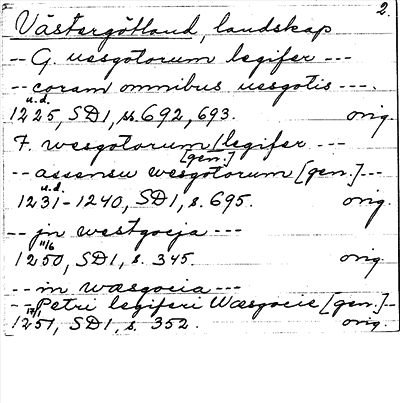 2.
Västergötland, landskap
-- G. uesgotorum legifer ---
-- coram omnibus uesgotis ----
u.d.
1225, SD1, s. 692, 693. orig.
F. wesgotorum [gen.] legifer ---
-- assensu wesgotorum [gen.] ---
u.d.
1231-1240, SD1, s. 695. orig.
-- jn westgocja ---
11/6
1250, SD1, s. 345. orig.
-- in wæsgocia ---
-- Petri legiferi Wæsgocie [gen.] --
17/1
1251, SD1, s. 352. orig.